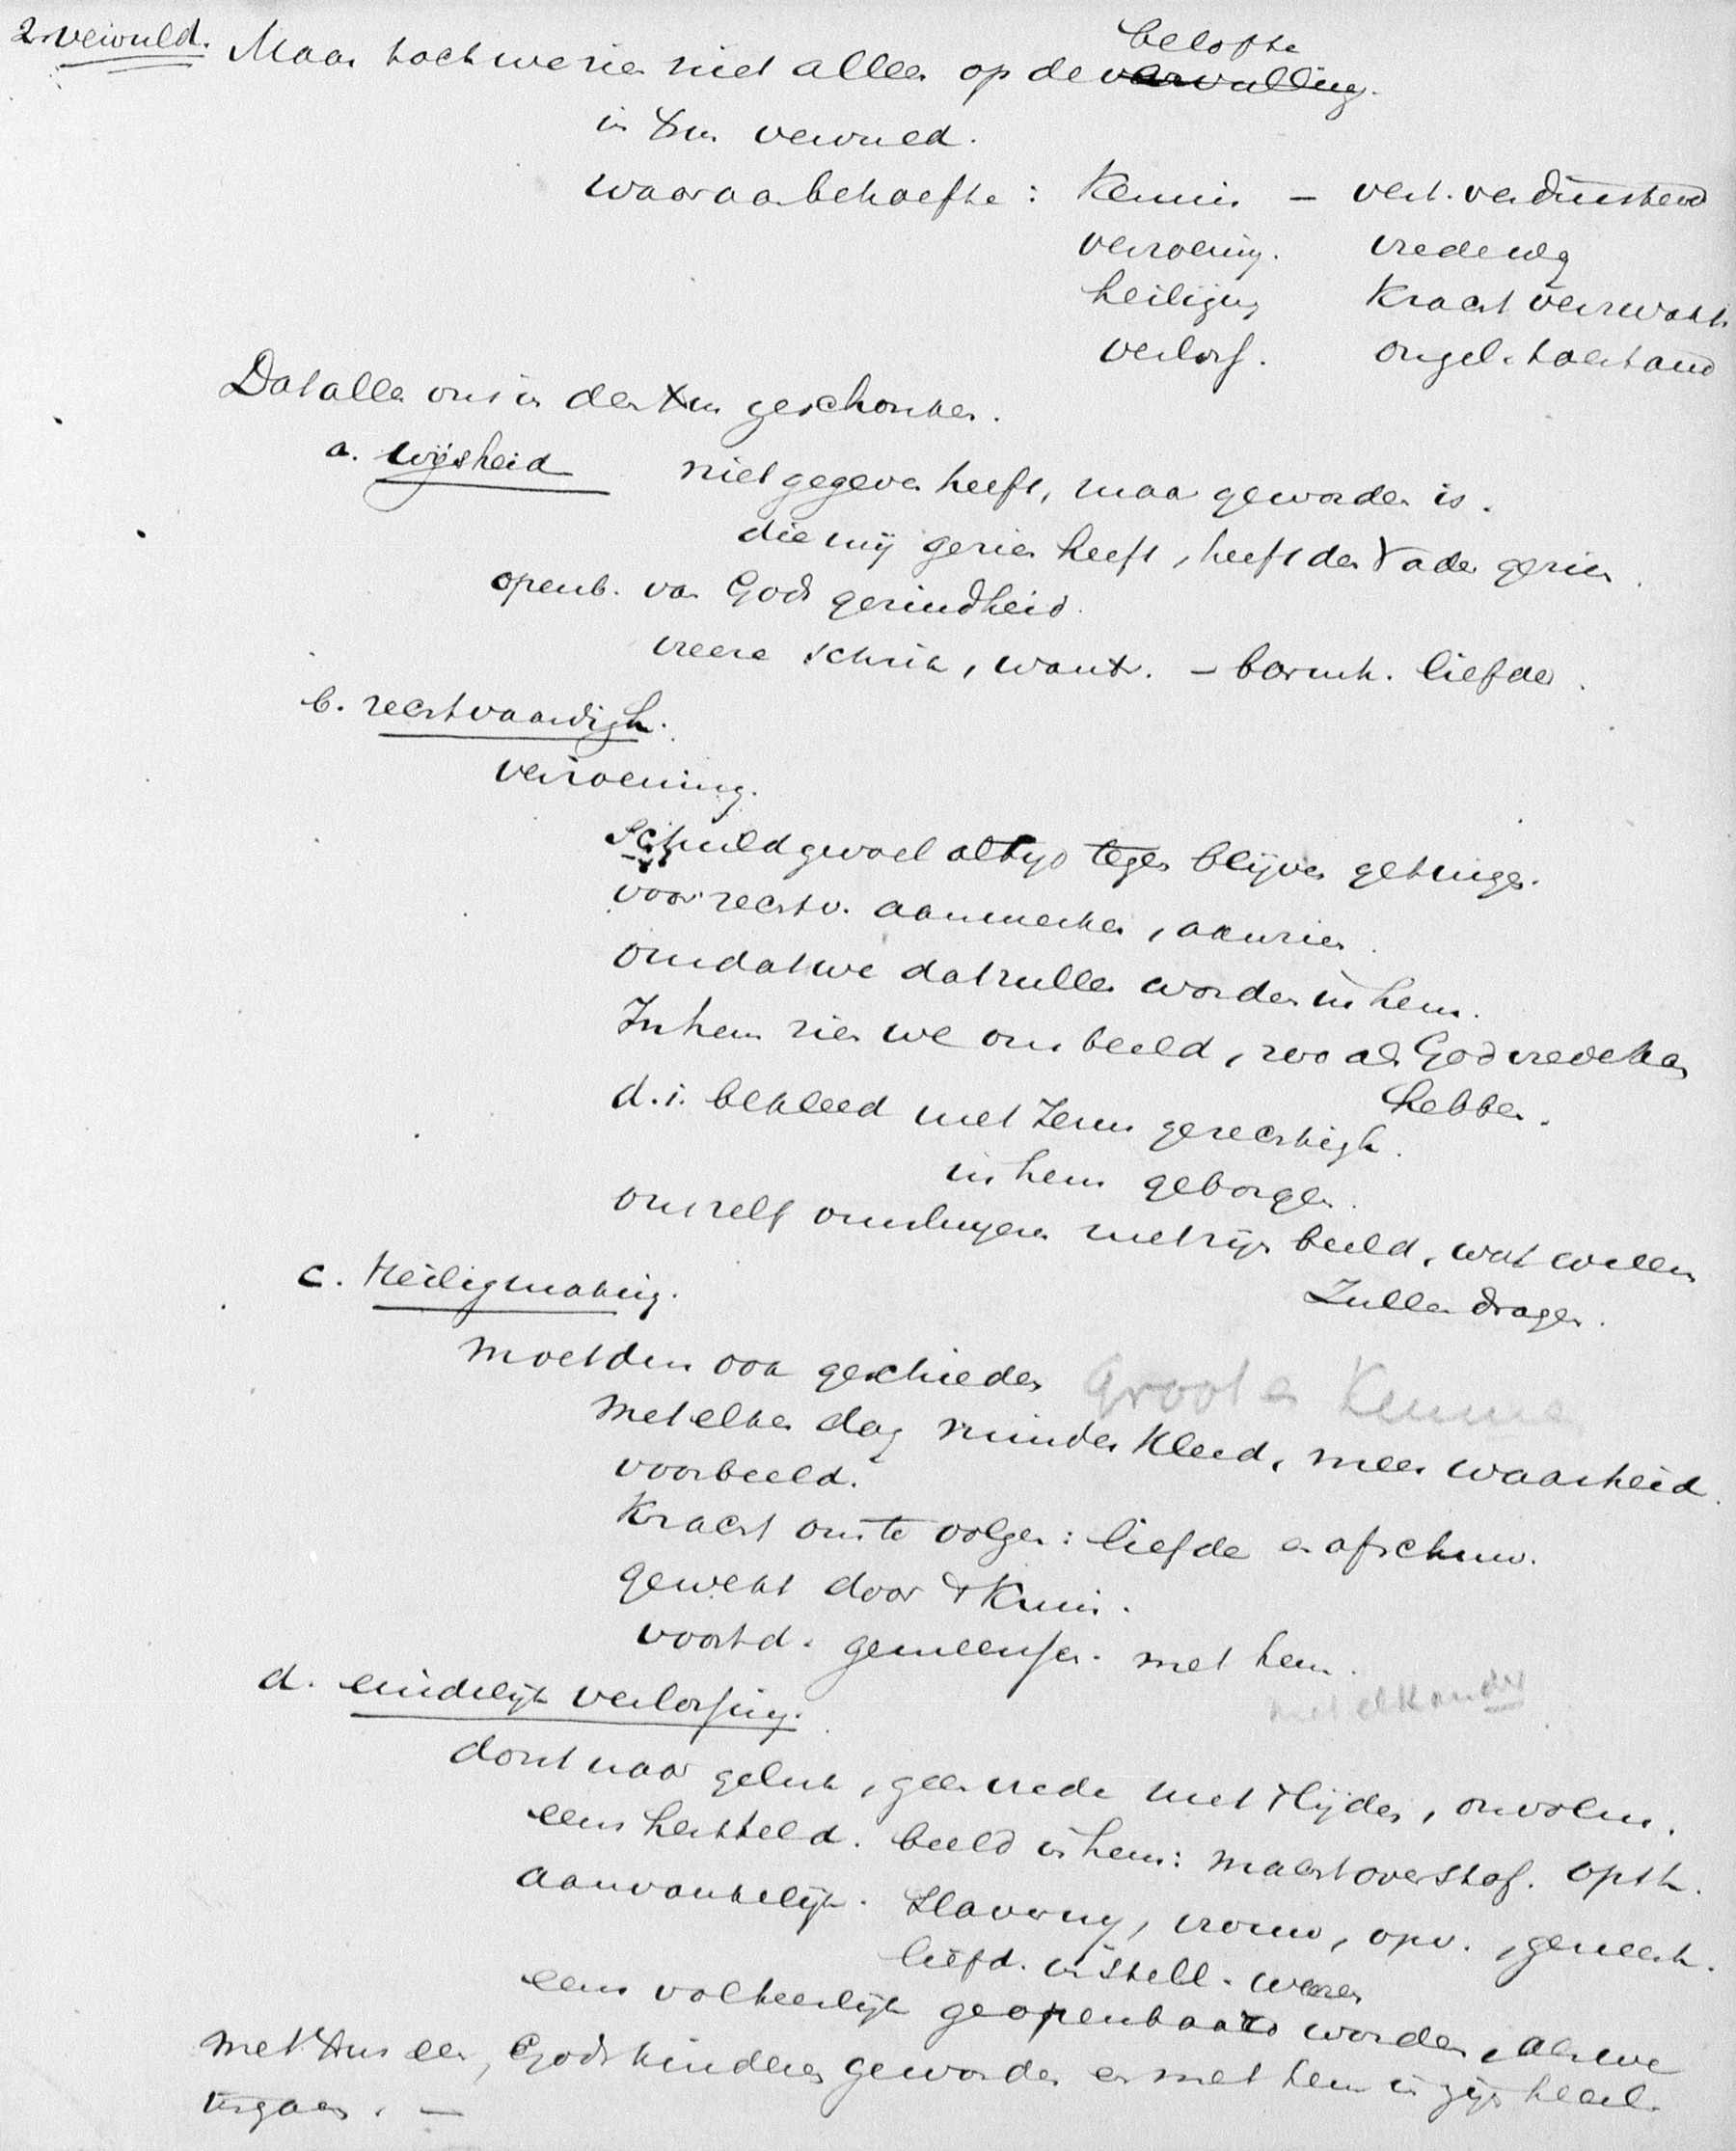 2. vervuld. Maar toch we zien niet alleen op de belofte vervulling.
in Xus vervuld.
waaraan behoefte: Kennis – verst. verduisterd
verzoening. vrede weg
heiliging Kracht verzwakt
verloss. ongel. toestand
Dat alles ons in den Xus geschonken.
a. wijsheid niet gegeven heeft, maar geworden is.
die mij gezien heeft, heeft den Vader gezien.
openb. van Gods gezindheid.
vreeze schrik, want. – barmh. liefde.
b. rechtvaardigh.
verzoening.
Schuldgevoel altijd tegen blijven getuigen.
voor rechtv. aanmerken, aanzien.
omdat we dat zullen worden in hem.
In hem zien we ons beeld, zooals God vrede kan
hebben.
d.i. bekleed met Jezus gerechtigh.
in hem geborgen.
onszelf omhangen met zijn beeld, wat willen
Zullen dragen.
c. Heiligmaking.
moet dus ook geschieden Groot en Kemme
met elken dag minder kleed, meer waarheid.
voorbeeld.
Kracht om te volgen: liefde en afschuw.
gewekt door 't Kruis.
voortd. gemeensch. met hem.
met elkander
d. eindelijk verlossing.
dorst naar geluk, geen vrede met 't lijden, onvolm.
eens hersteld. beeld in hem: macht over stof. opst.
aanvankelijk. Slaverny, vrouw, opv., gemeensch.
liefd. instell. wezen
eens volkomelijk geopenbaard worden, als we
met Xus een, Gods kinderen geworden en met hem in zijn heerl.
ingaan. –